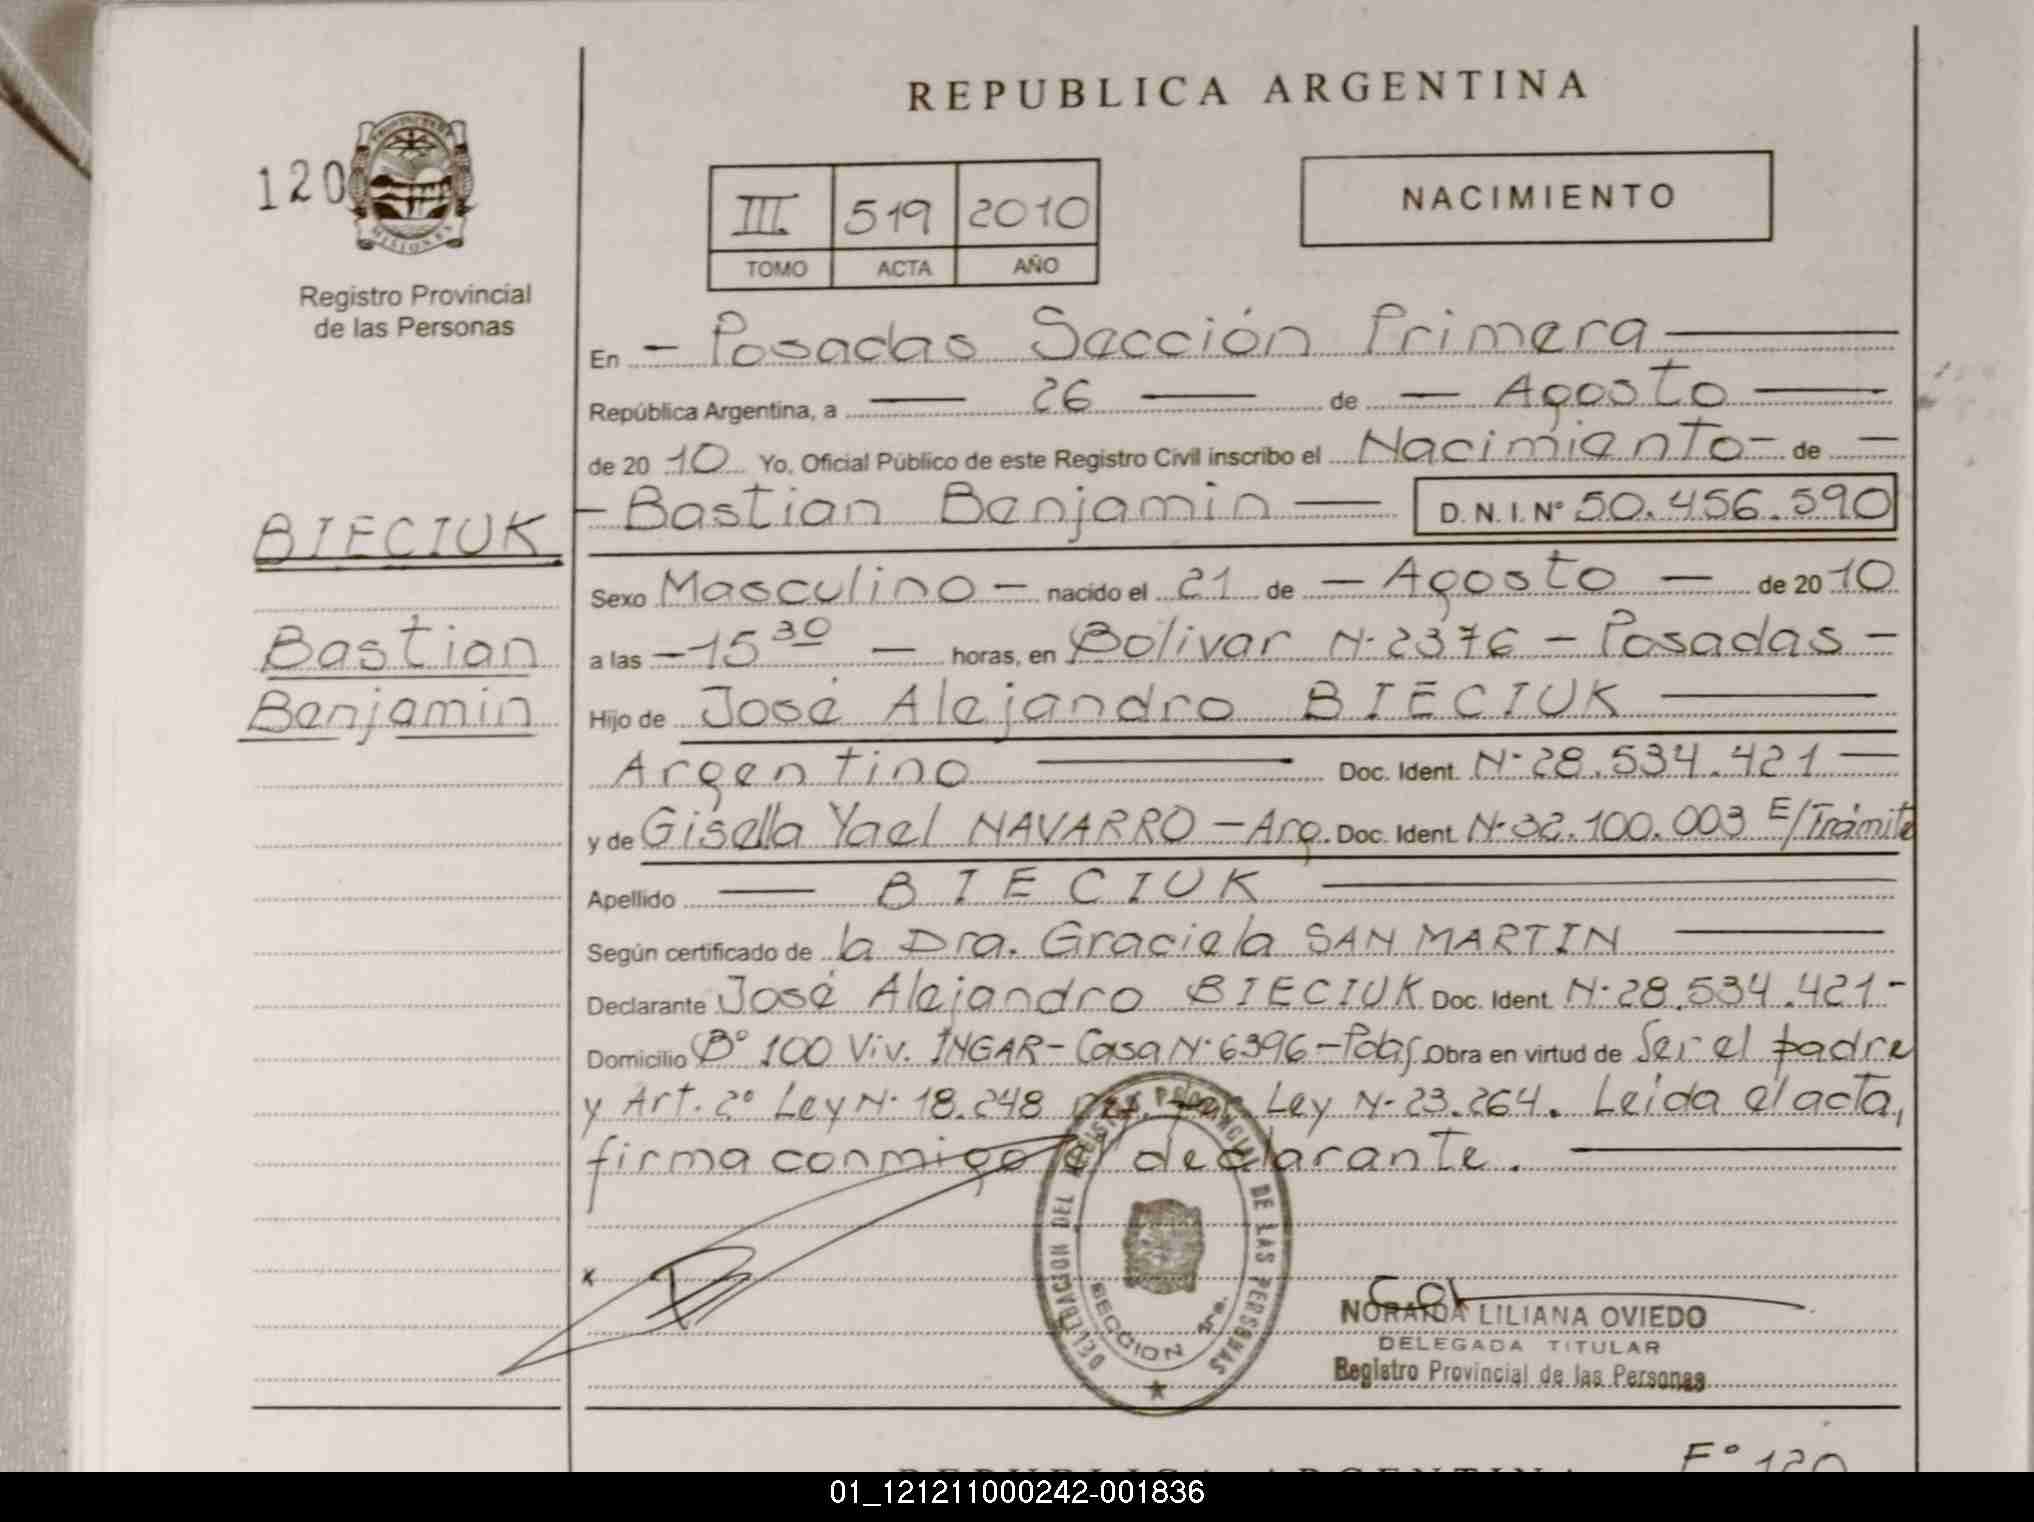 REPUBLICA ARGENTINA
120
PROVINCIA DE
MISIONES
Registro Provincial
de las Personas
III 519 2010
TOMO ACTA AÑO
NACIMIENTO
En - Posadas Sección Primera
República Argentina, a — 26 — de — Agosto —
de 2010 Yo, Oficial Público de este Registro Civil inscribo el Nacimiento - de —
- Bastian Benjamin — D.N.I. Nº 50.456.590
BIECIUK
Bastian
Benjamin
Sexo Masculino — nacido el 21 de — Agosto — de 2010
a las - 15 30 — horas, en Bolivar N· 2376 - Posadas -
Hijo de José Alejandro BIECIUK
Argentino — Doc. Ident. N· 28.534.421 —
y de Gisella Yael NAVARRO - Arg. Doc. Ident. N· 32.100.003 E/Trámite
Apellido — BIECIUK —
Según certificado de la Dra. Graciela SAN MARTIN —
Declarante José Alejandro BIECIUK Doc. Ident. N· 28.534.421 -
Domicilio Bº 100 Viv. INGAR - Casa N· 6396 - Pdas. Obra en virtud de Ser el padre
y Art. 2º Ley N· 18.248 Ley N· 23.264. Leida el acta,
firma conmigo el declarante. —
x
DELEGACION DEL REGISTRO PROVINCIAL DE LAS PERSONAS
SECCION 1ra.
NORAIDA LILIANA OVIEDO
DELEGADA TITULAR
Registro Provincial de las Personas
REPUBLICA ARGENTINA
Fº 120
01_121211000242-001836